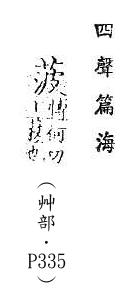 四聲篇海
菠
何切
也
（艸部・P335）